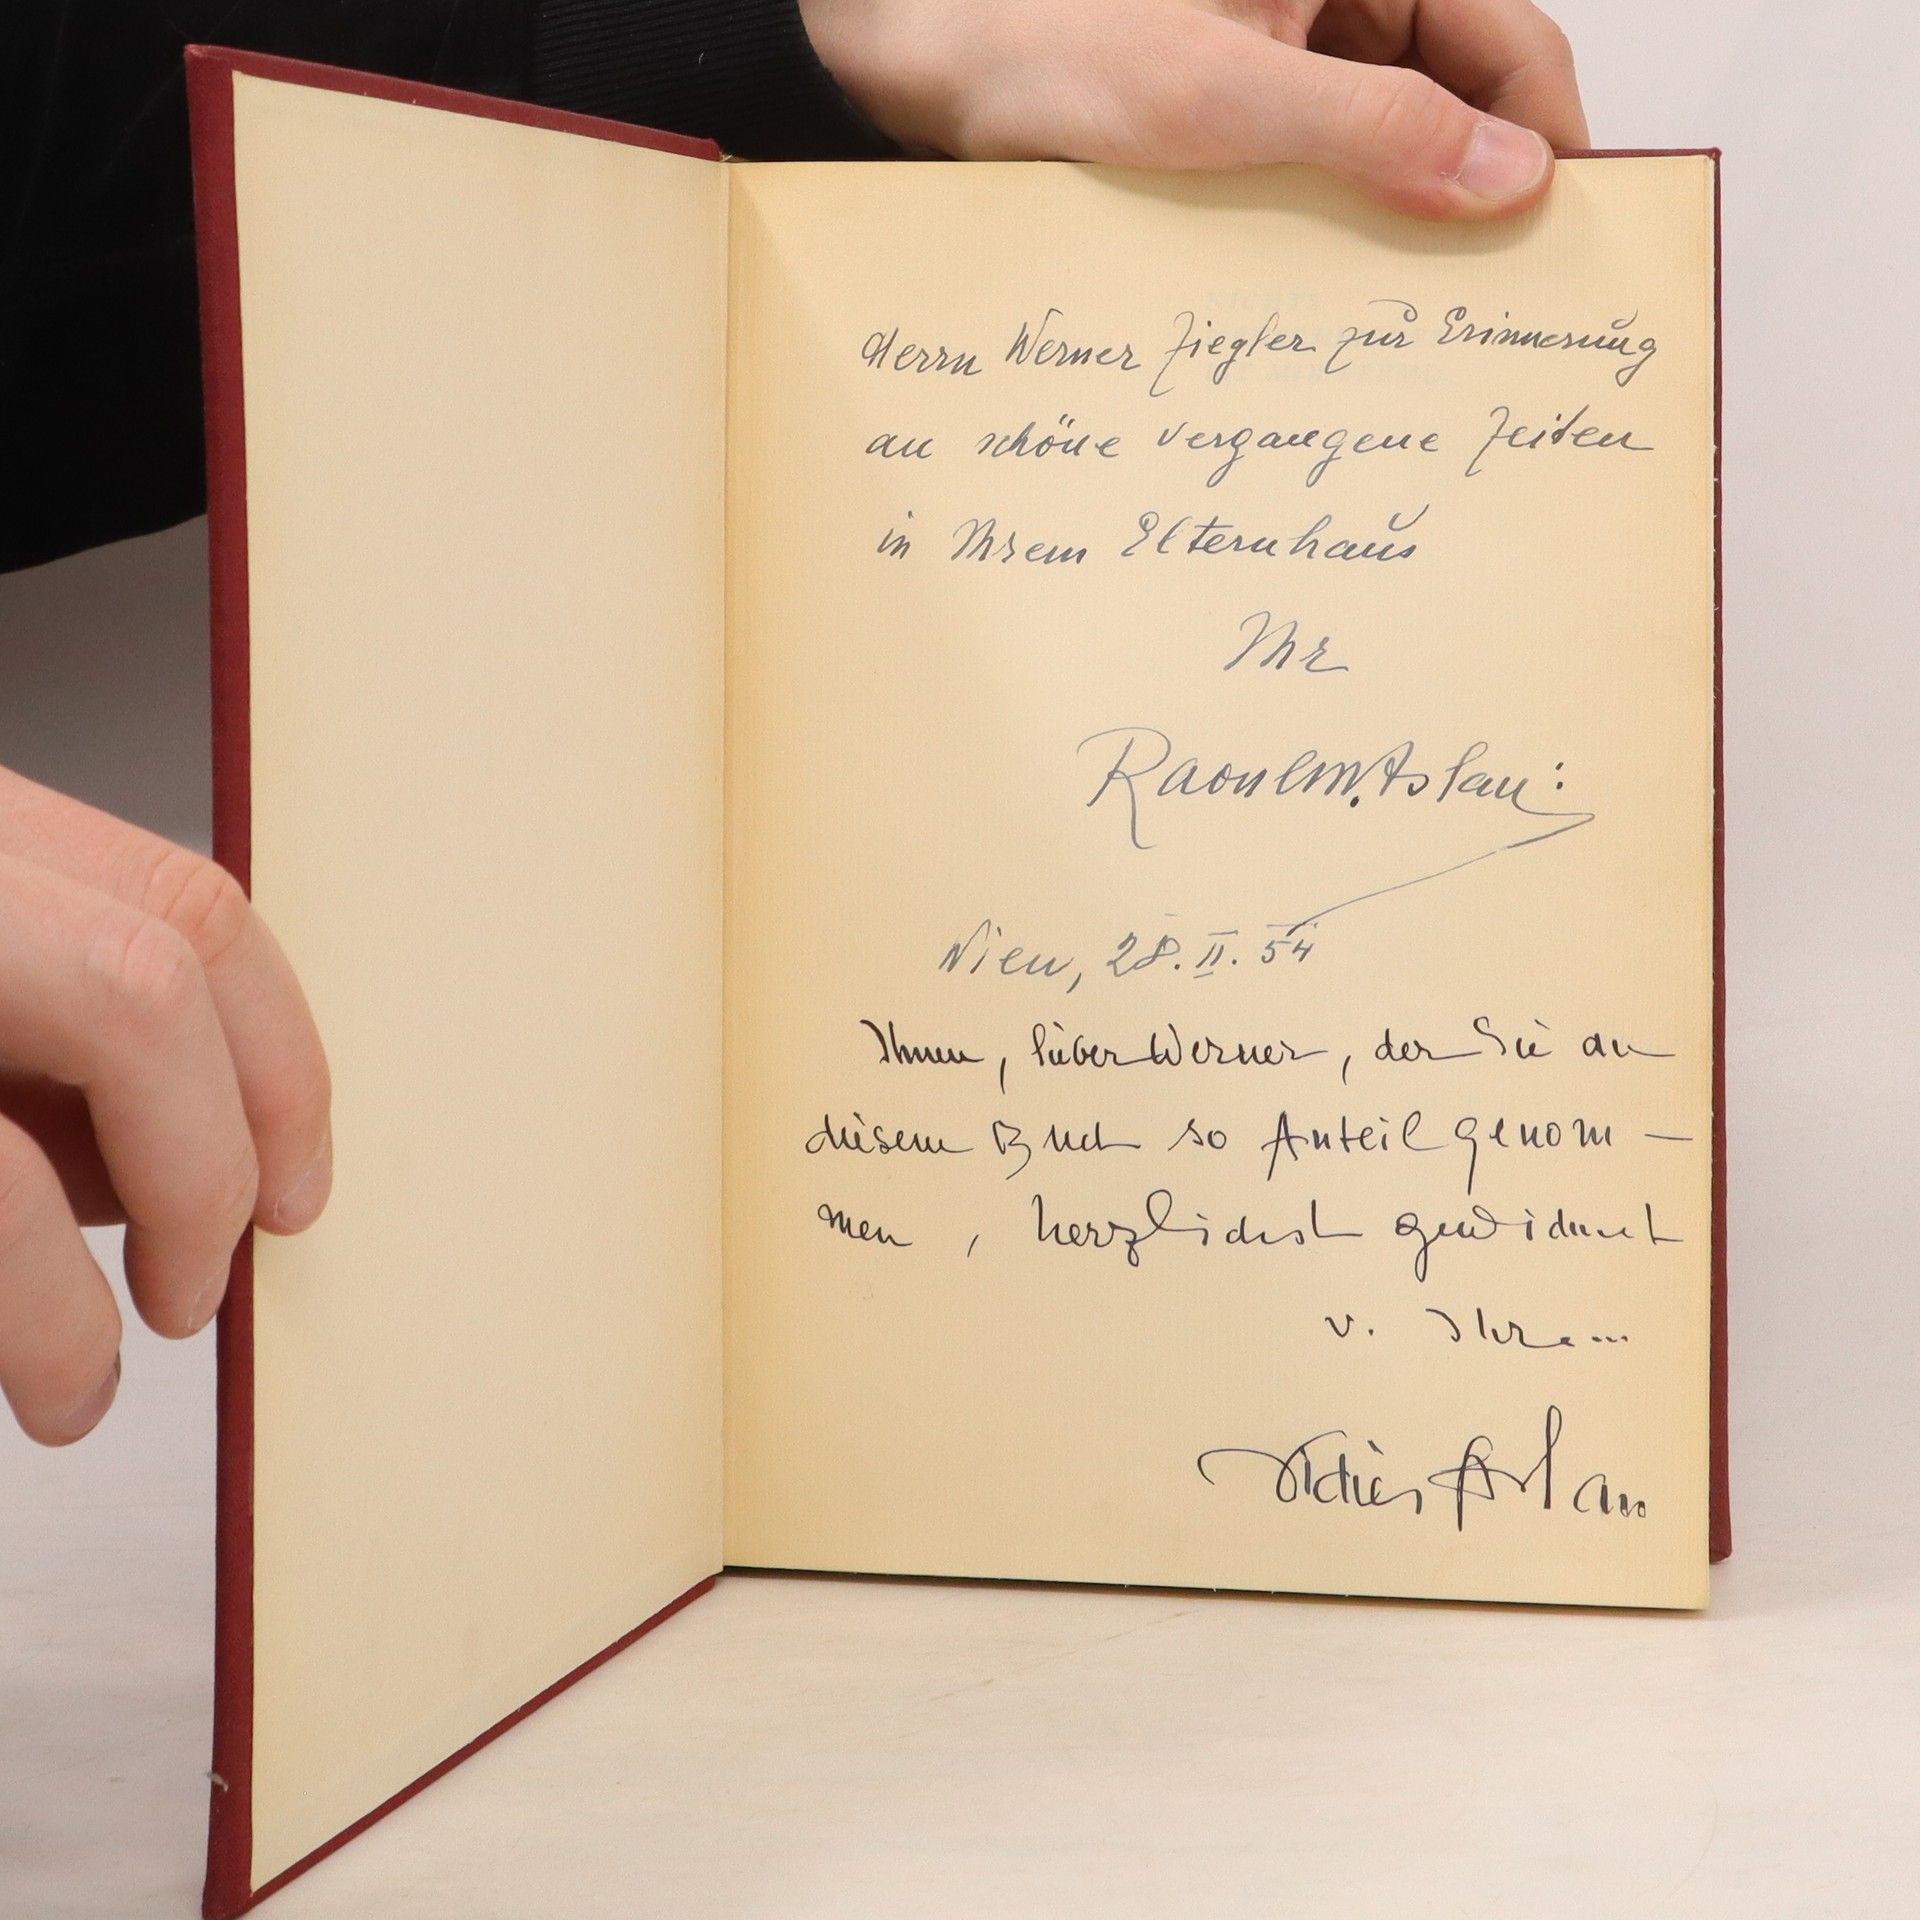 Herrn Werner Ziegler zur Erinnerung
an schöne vergangene Zeiten
in Ihrem Elternhaus
Ihr
Raoul M. Aslan:
Wien, 28. II. 54
Ihnen, lieber Werner, der Sie an
diesem Buch so Anteil genom —
men, herzlichst gewidmet
v. Ihrem
Aslan